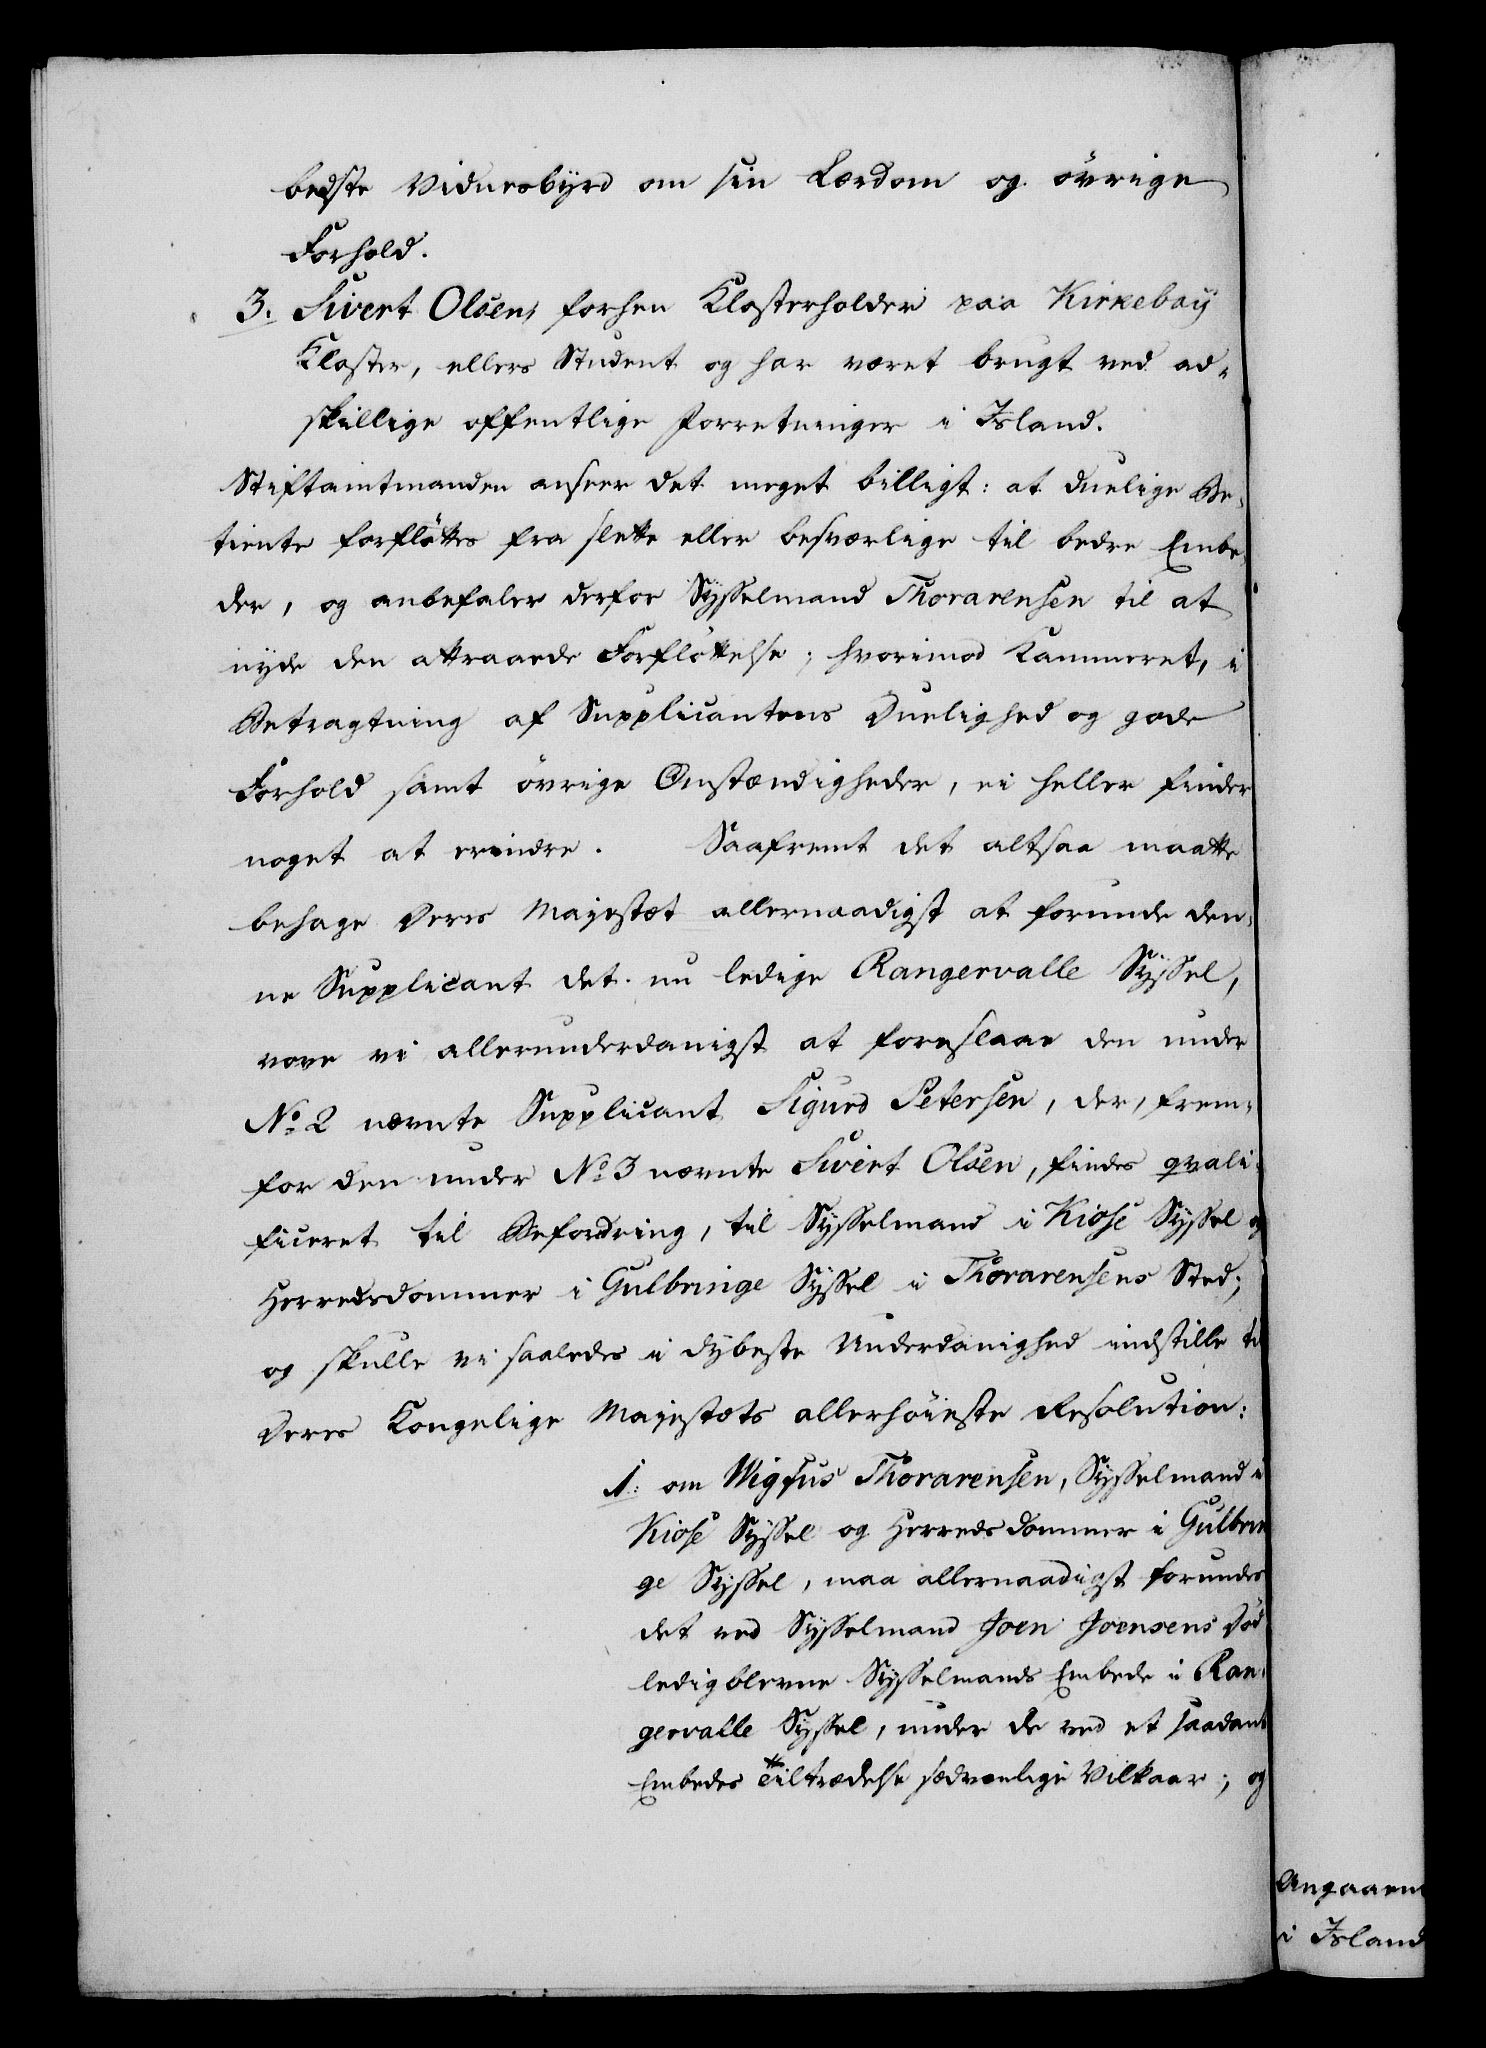 bedste Vidnesbyrd om sin Lærdom og övrige
Forhold.
3. Sivert Olsen, forhen Klosterholder paa Kirkebay
Kloster, ellers Student og har været brugt ved ad-
skillige offentlige Forretninger i Island.
Stiftamtmanden anseer det meget billigt: at duelige Be-
tiente forflöttes fra slette eller besværlige til bedre Embe-
der, og anbefaler derfor Sysselmand Thorarensen til at
nyde den attraaede Forflöttelse; hvorimod Kammeret, i
Betragtning af Supplicantens Duelighed og gode
Forhold samt övrige Omstændigheder, ei heller finder
noget at erindre. Saafremt det altsaa maatte
behage Deres Majestæt allernaadigst at forunde den-
ne Supplicant det nu ledige Rangervalle Syssel,
vove vi allerunderdanigst at foreslaae den under
No 2 nævnte Supplicant Sigurd Petersen, der, frem-
for den under No 3 nævnte Sivert Olsen, findes qvali-
ficeret til Befordring, til Sysselmand i Kiose Syssel og
Herredsdommer i Gulbringe Syssel i Thorarensens Sted;
og skulle vi saaledes i dybeste Underdanighed indstille til
Deres Kongelige Majestæts allerhöieste Resolution:
1. om Wigfus Thorarensen, Sysselmand i
Kiose Syssel og Herredsdommer i Gulbrin
ge Syssel, maa allernaadigst forundes
det ved Sysselmand Joen Joensens Död
ledigblevne Sysselmands Embede i Ran-
gervalle Syssel, under de ved et saadant
Embedes Tiltrædelse sædvanlige Vilkaar; og
Angaaen
i Island